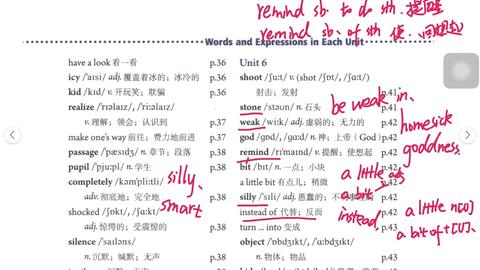 remind sb. to do sth. 提醒
remind sb. of sth 使…回想起
Words and Expressions in Each Unit
have a look 看一看 p.36
icy /ˈaɪsi/ adj. 覆盖着冰的；冰冷的 p.36
kid /kɪd/ v. 开玩笑；欺骗 p.36
realize /ˈrɪəlaɪz/, /ˈriːəlaɪz/
v. 理解；领会；认识到 p.37
make one's way 前往；费力地前进 p.37
passage /ˈpæsɪdʒ/ n. 章节；段落 p.38
pupil /ˈpjuːpl/ n. 学生 p.38
completely /kəmˈpliːtli/
adv. 彻底地；完全地
shocked /ʃɒkt/, /ʃɑːkt/
adj. 惊愕的；受震惊的 p.38
silence /ˈsaɪləns/
n. 沉默；缄默；无声 p.38
silly,
smart
Unit 6
shoot /ʃuːt/ v. (shot /ʃɒt/, /ʃɑːt/)
射击；发射 p.41
stone /stəʊn/ n. 石头 p.41
weak /wiːk/ adj. 虚弱的；无力的 p.42
god /ɡɒd/, /ɡɑːd/ n. 神；上帝（God） p.42
remind /rɪˈmaɪnd/ v. 提醒；使想起 p.42
bit /bɪt/ n. 一点；小块 p.42
a little bit 有点儿；稍微 p.42
silly /ˈsɪli/ adj. 愚蠢的；不 p.42
instead of 代替；反而 p.42
turn ... into 变成 p.42
object /ˈɒbdʒɪkt/, /ˈɑːbdʒɪkt/
n. 物体；物品 p.43
be weak in.
homesick
goddness.
a little adj
a bit
instead,
a little n[U]
a bit of+[U].